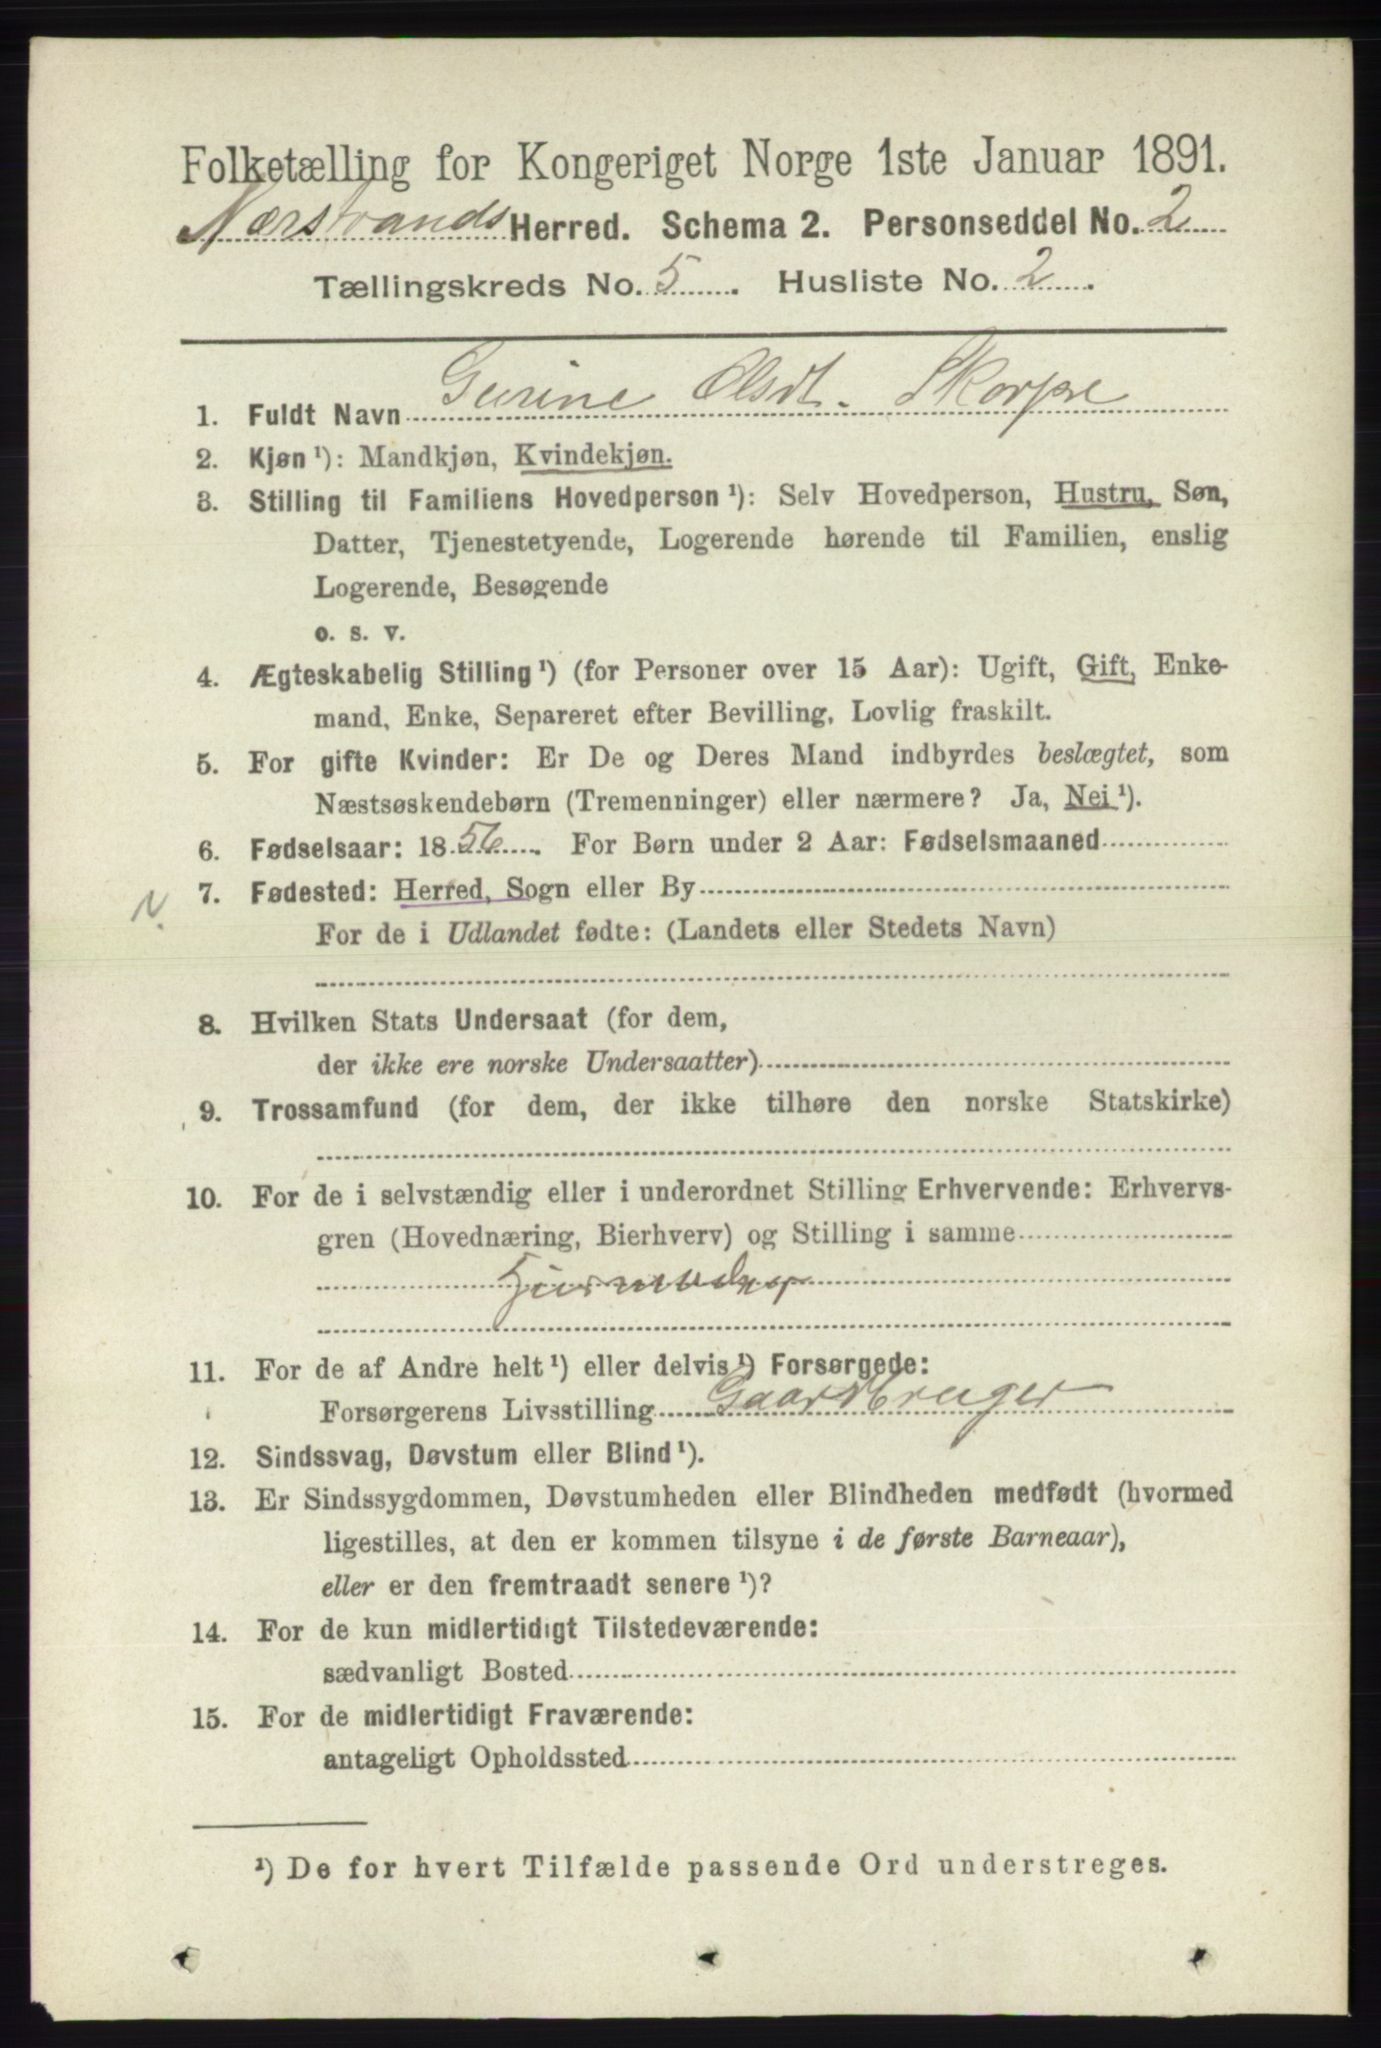 Folketælling for Kongeriget Norge 1ste Januar 1891.
Nærstrands Herred. Schema 2. Personseddel No. 2
Tællingskreds No. 5. Husliste No. 2.
1. Fuldt Navn Gurine Olsdt. Skorpe
2. Kjøn¹): Mandkjøn, Kvindekjøn.
3. Stilling til Familiens Hovedperson¹): Selv Hovedperson, Hustru, Søn,
Datter, Tjenestetyende, Logerende hørende til Familien, enslig
Logerende, Besøgende
o. s. v.
4. Ægteskabelig Stilling¹) (for Personer over 15 Aar): Ugift, Gift, Enke-
mand, Enke, Separeret efter Bevilling, Lovlig fraskilt.
5. For gifte Kvinder: Er De og Deres Mand indbyrdes beslægtet, som
Næstsøskendebørn (Tremenninger) eller nærmere? Ja, Nei¹).
6. Fødselsaar: 1856. For Børn under 2 Aar: Fødselsmaaned
N. 7. Fødested: Herred, Sogn eller By
For de i Udlandet fødte: (Landets eller Stedets Navn)
8. Hvilken Stats Undersaat (for dem,
der ikke ere norske Undersaatter)
9. Trossamfund (for dem, der ikke tilhøre den norske Statskirke)
10. For de i selvstændig eller i underordnet Stilling Erhvervende: Erhvervs-
gren (Hovednæring, Bierhverv) og Stilling i samme
Husmoder
11. For de af Andre helt¹) eller delvis¹) Forsørgede:
Forsørgerens Livsstilling Gaardbruger
12. Sindssvag, Døvstum eller Blind¹).
13. Er Sindssygdommen, Døvstumheden eller Blindheden medfødt (hvormed
ligestilles, at den er kommen tilsyne i de første Barneaar),
eller er den fremtraadt senere¹)?
14. For de kun midlertidigt Tilstedeværende:
sædvanligt Bosted
15. For de midlertidigt Fraværende:
antageligt Opholdssted
¹) De for hvert Tilfælde passende Ord understreges.